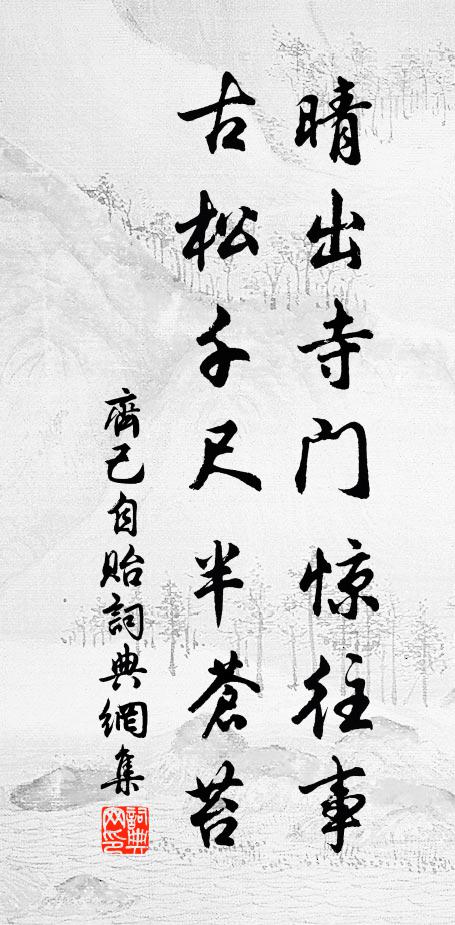 晴出寺门惊往事
古松千尺半蒼苔
齊己自貽詞典網集
詞典網印